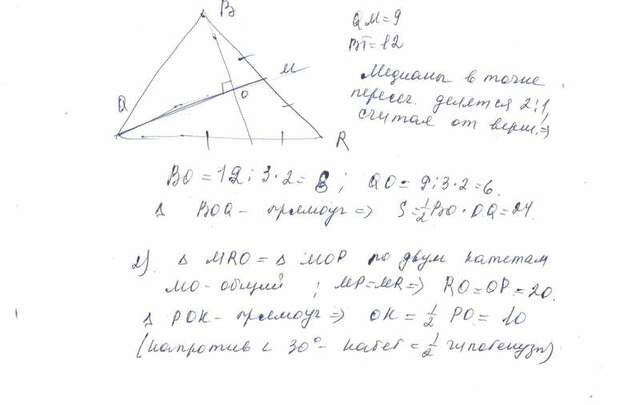 B
QM=9
BT=12
M
Q
O
R
Медианы в точке
пересеч. делятся 2:1,
считая от верш.=>
BO=12:3·2=8; QO=9:3·2=6.
Δ BOQ - прямоуг => S=½BO·OQ=24.
2) Δ MRO = Δ MOP по двум катетам
MO-общий ; MP=MR=> RO=OP=20.
Δ POK - прямоуг => OK=½ PO=10
(напротив ∠ 30°- катет=½ гипотенузы)